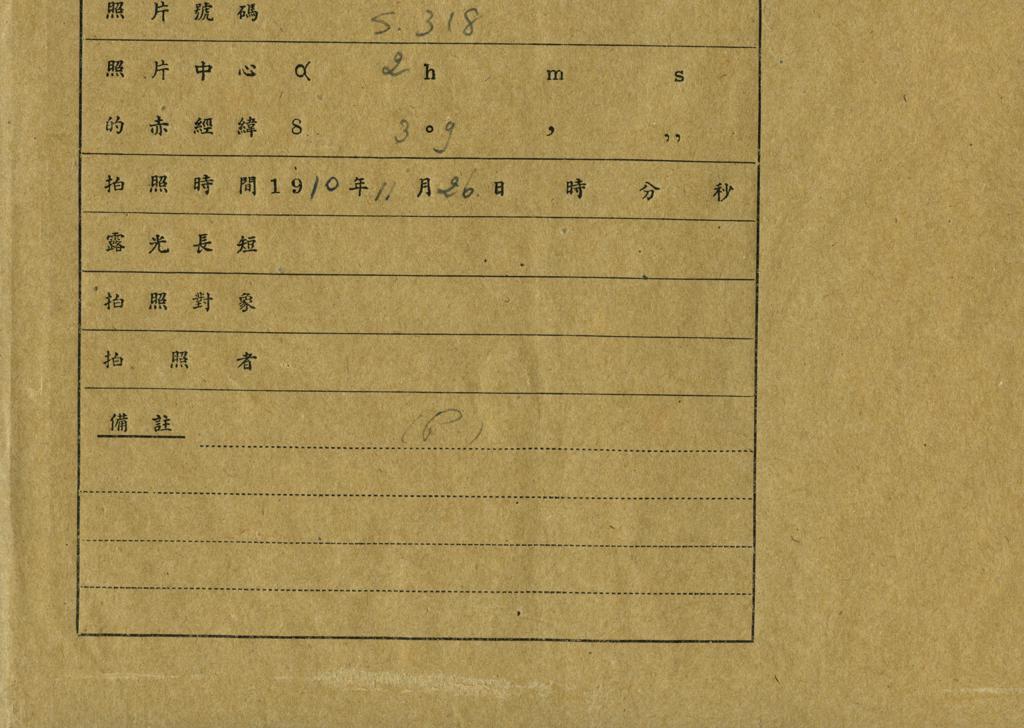 照片號碼 S. 318
照片中心 α 2 h m s
的赤經緯 δ 3 ° 9 , ,,
拍照時間 1910年11月26日 時 分 秒
露光長短
拍照對象
拍照者
備註 (P)